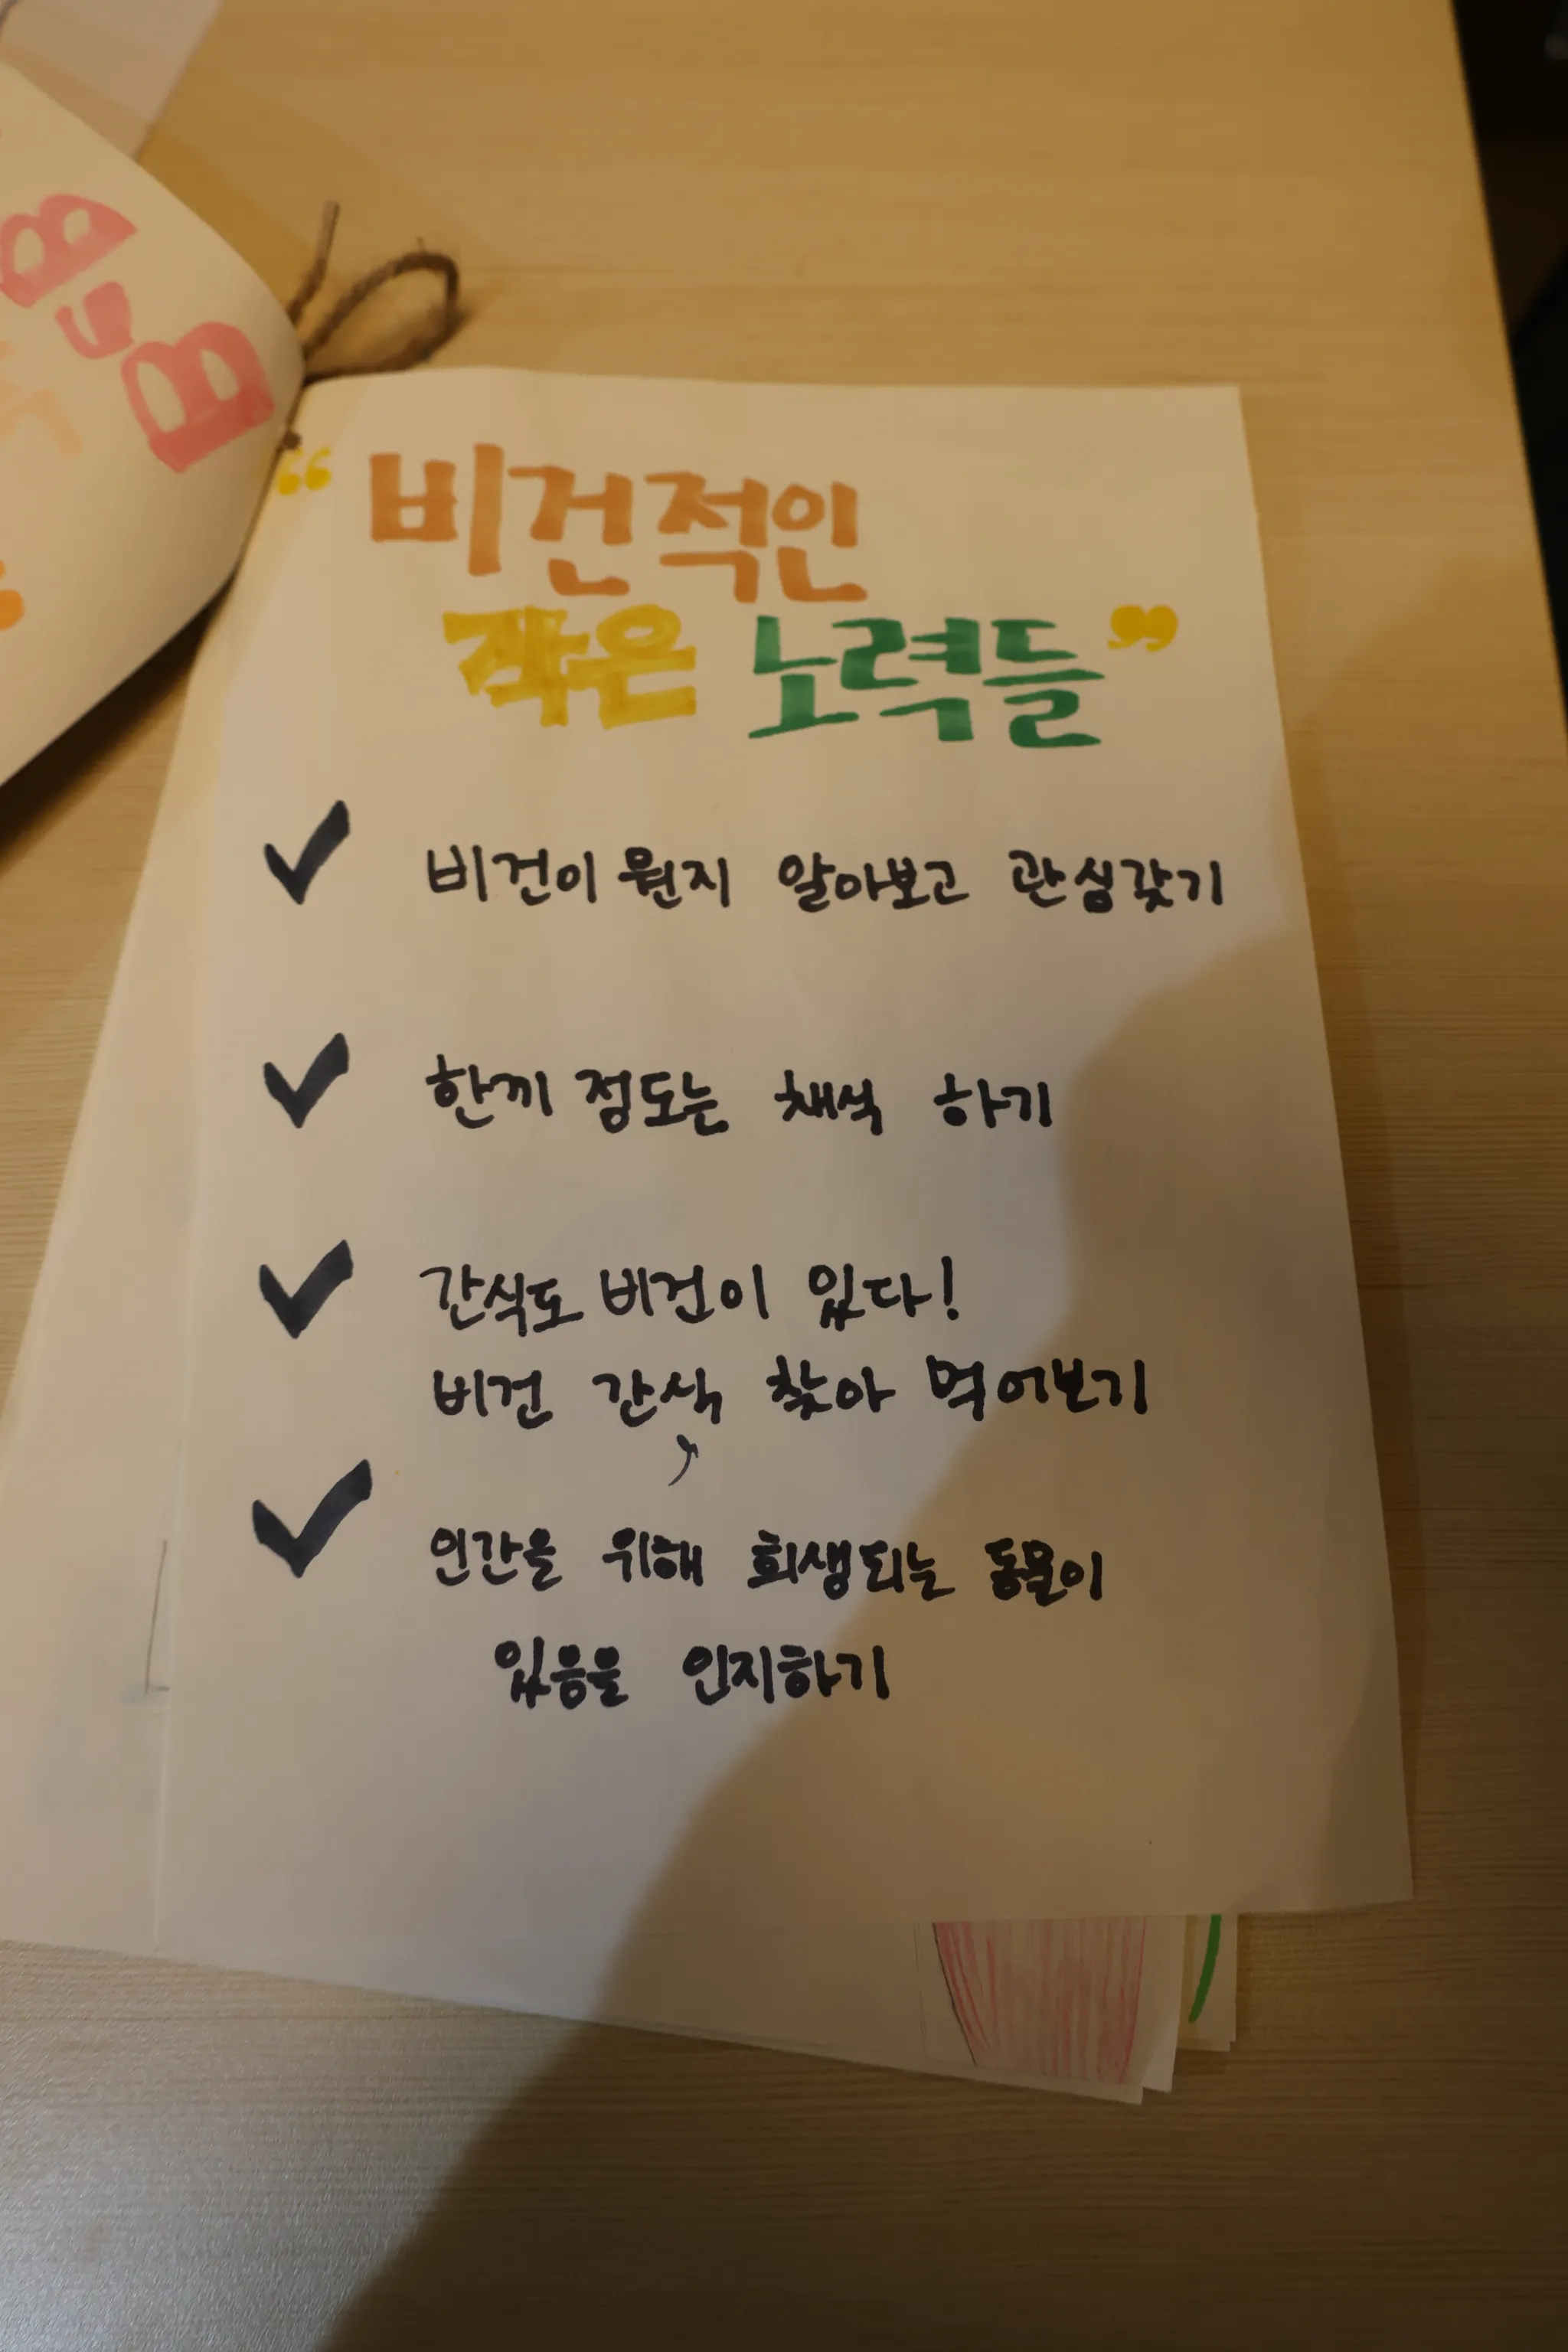 “비건적인
작은 노력들”
비건이 뭔지 알아보고 관심갖기
한끼 정도는 채식 하기
간식도 비건이 있다!
비건 간식 찾아 먹어보기
인간을 위해 희생되는 동물이
있음을 인지하기